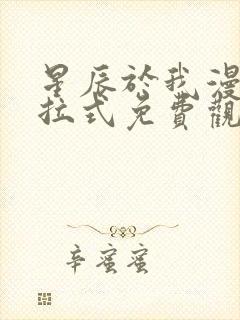 星辰於我漫
拉式免費觀
辛蜜蜜